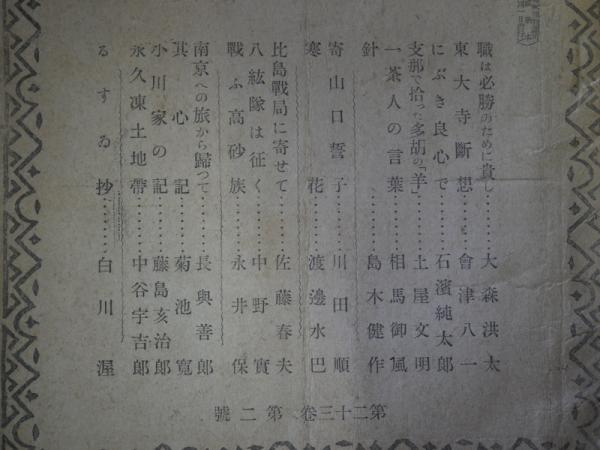 職は必勝のために貴し………大森洪太
東大寺斷想………會津八一
にぶき良心で………石濱純太郎
支那で拾った多胡の「羊」………土屋文明
一茶人の言葉………相馬御風
針………島木健作
寄山口誓子………川田順
寒花………渡邊水巴
比島戰局に寄せて………佐藤春夫
八紘隊は征く………中野實
戰ふ高砂族………永井保
南京への旅から歸つて………長與善郎
其心記………菊池寬
小川家の記………藤島亥治郎
永久凍土地帶………中谷宇吉郎
るすゐ抄………白川渥
第二十三卷 第二號